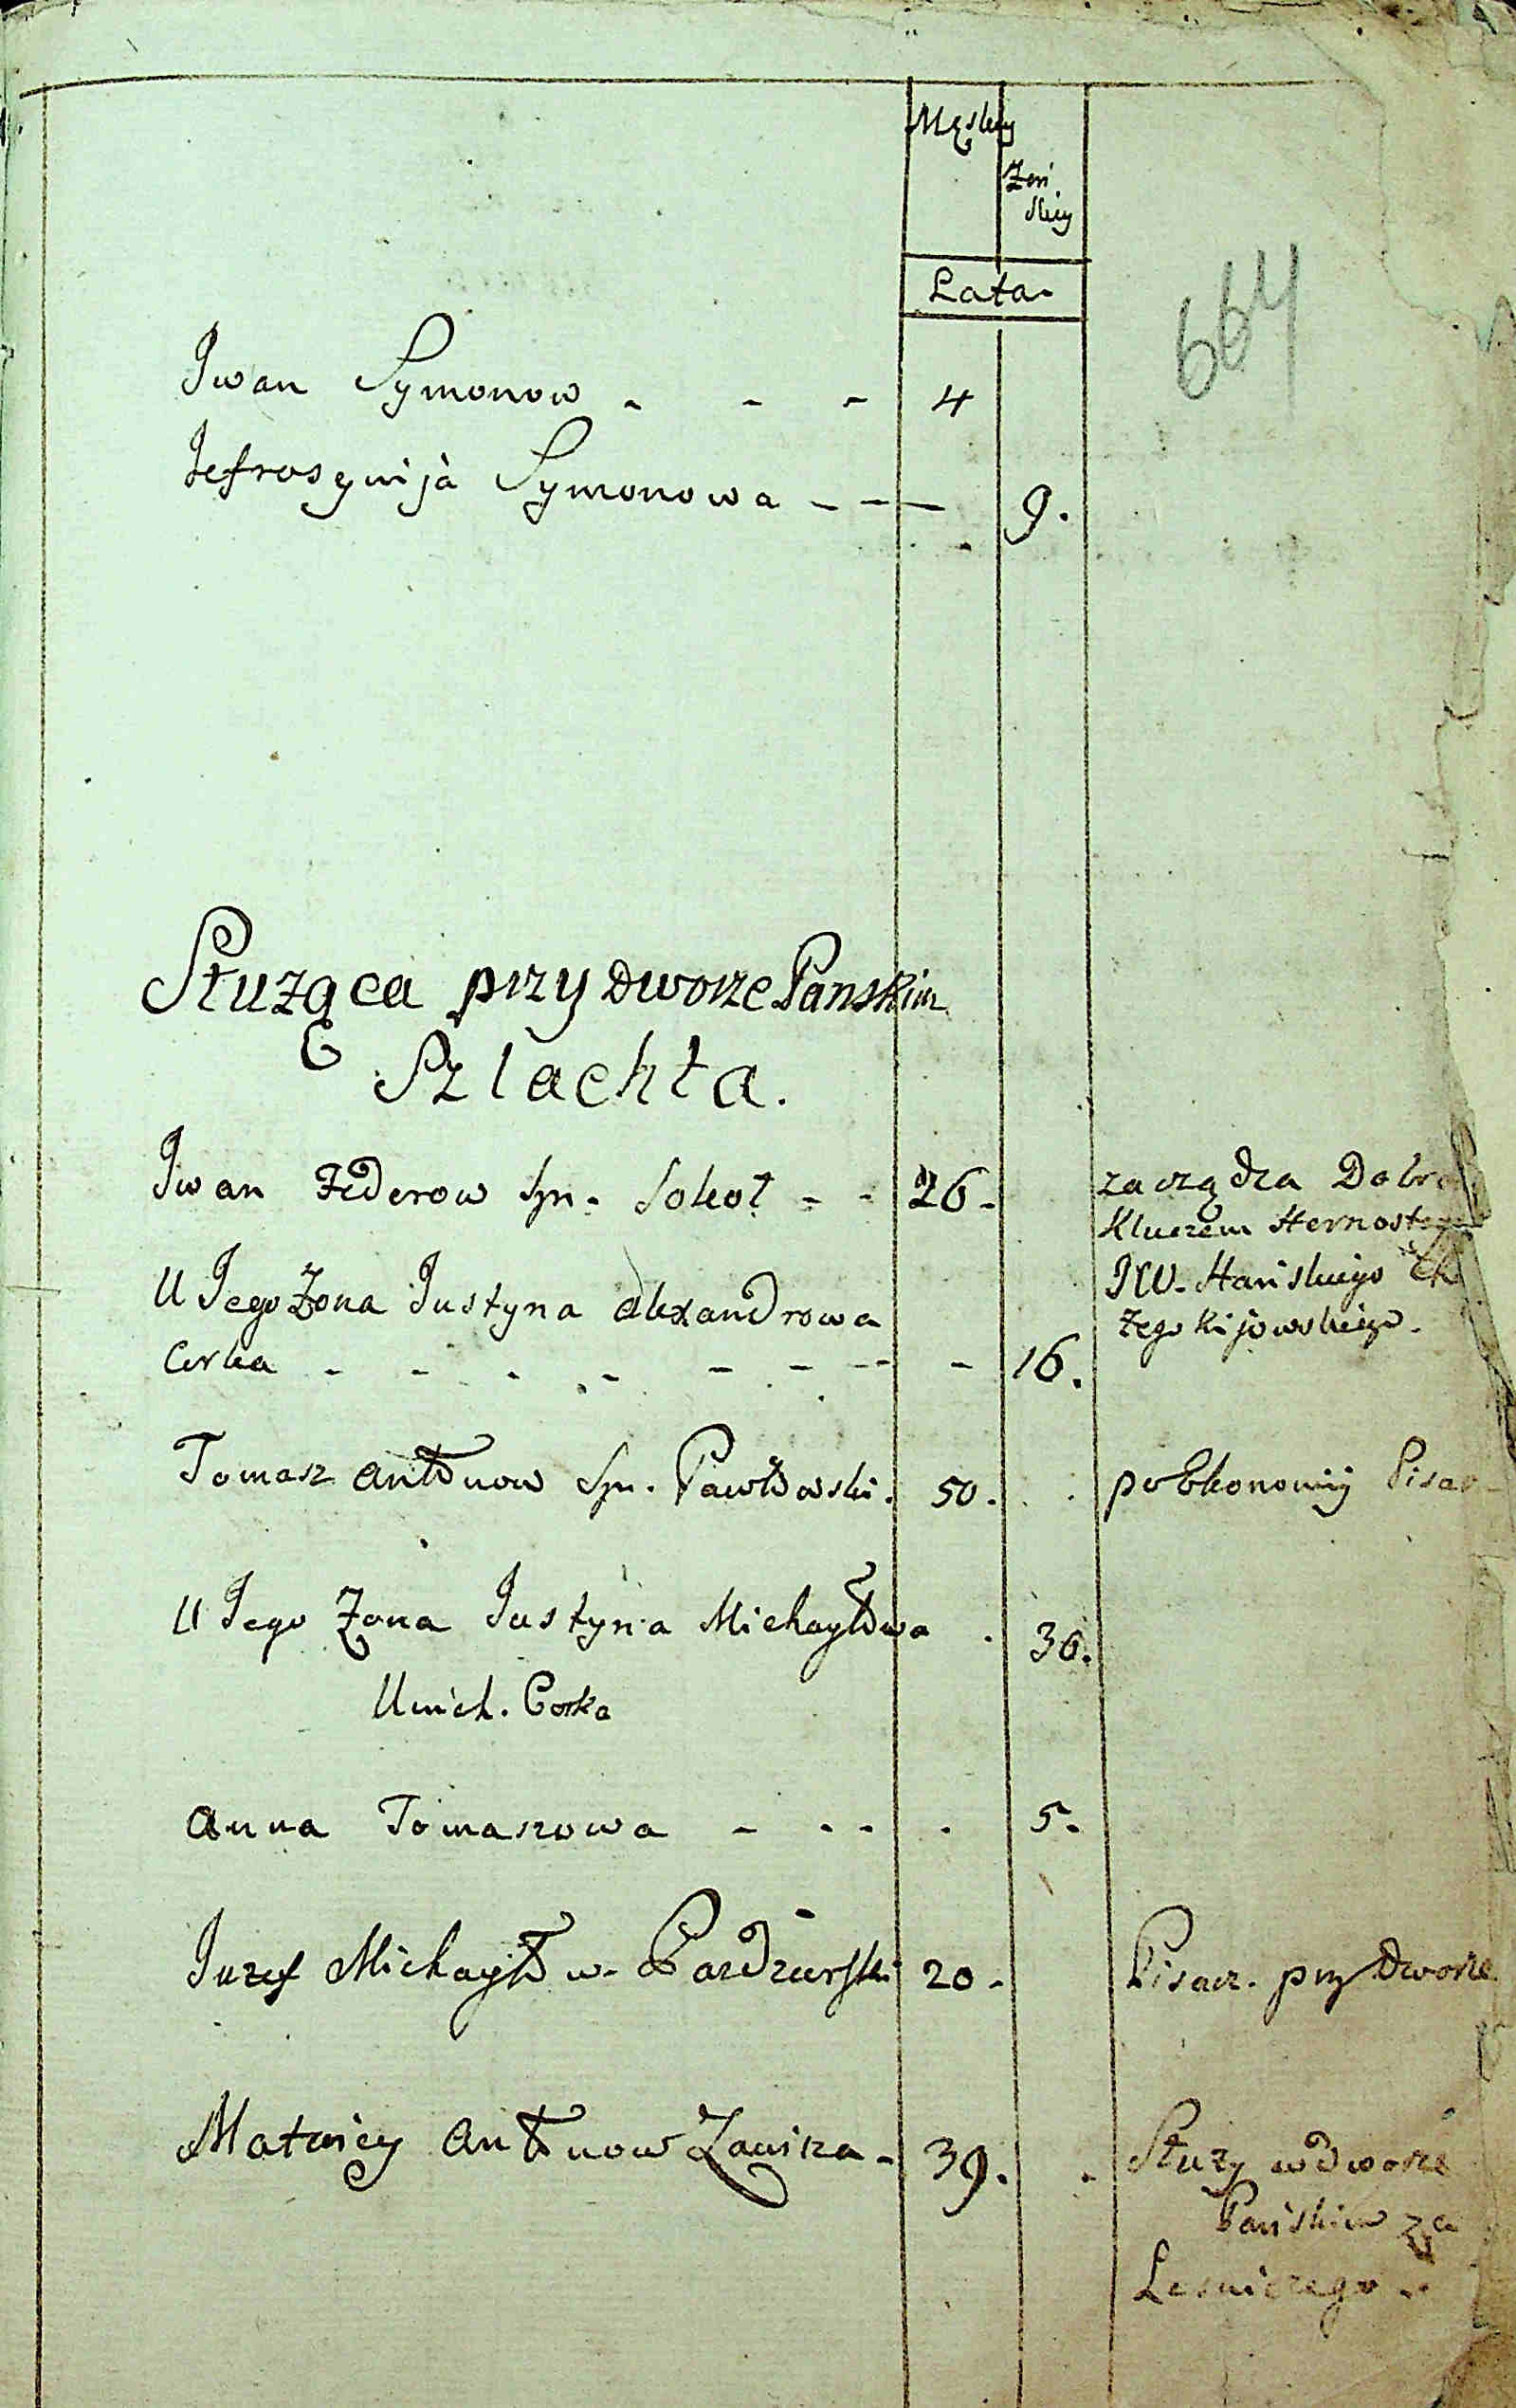 Męskiy
Żeń
skiy
Lata
664
Iwan Symonow - - - 4
Jefrosynija Symonowa - - - 9.
Służąca przy dworze Panskim
Szlachta.
Iwan Federow Syn. Sokoł - - 26.
zarządza Dobr
Kluczem Hernost
JW. Hańskiego Ch
żego Kijowskiego.
U Jego Żona Justyna Alexandrowa
Corka - - - - - - - - 16.
Tomasz Antonow Syn. Pawłowski. 50. po Ekonomij Pisar
U Jego Żona Justyna Michayłowa . 36.
U nich. Corka
Anna Tomaszowa - - - . 5.
Iuzef Michayłow. 20. Pisarz. przy Dworze
Matwiey Antonow Zawisza - 39.
Służy w Dworze
Pańskim za
Lesniczego..